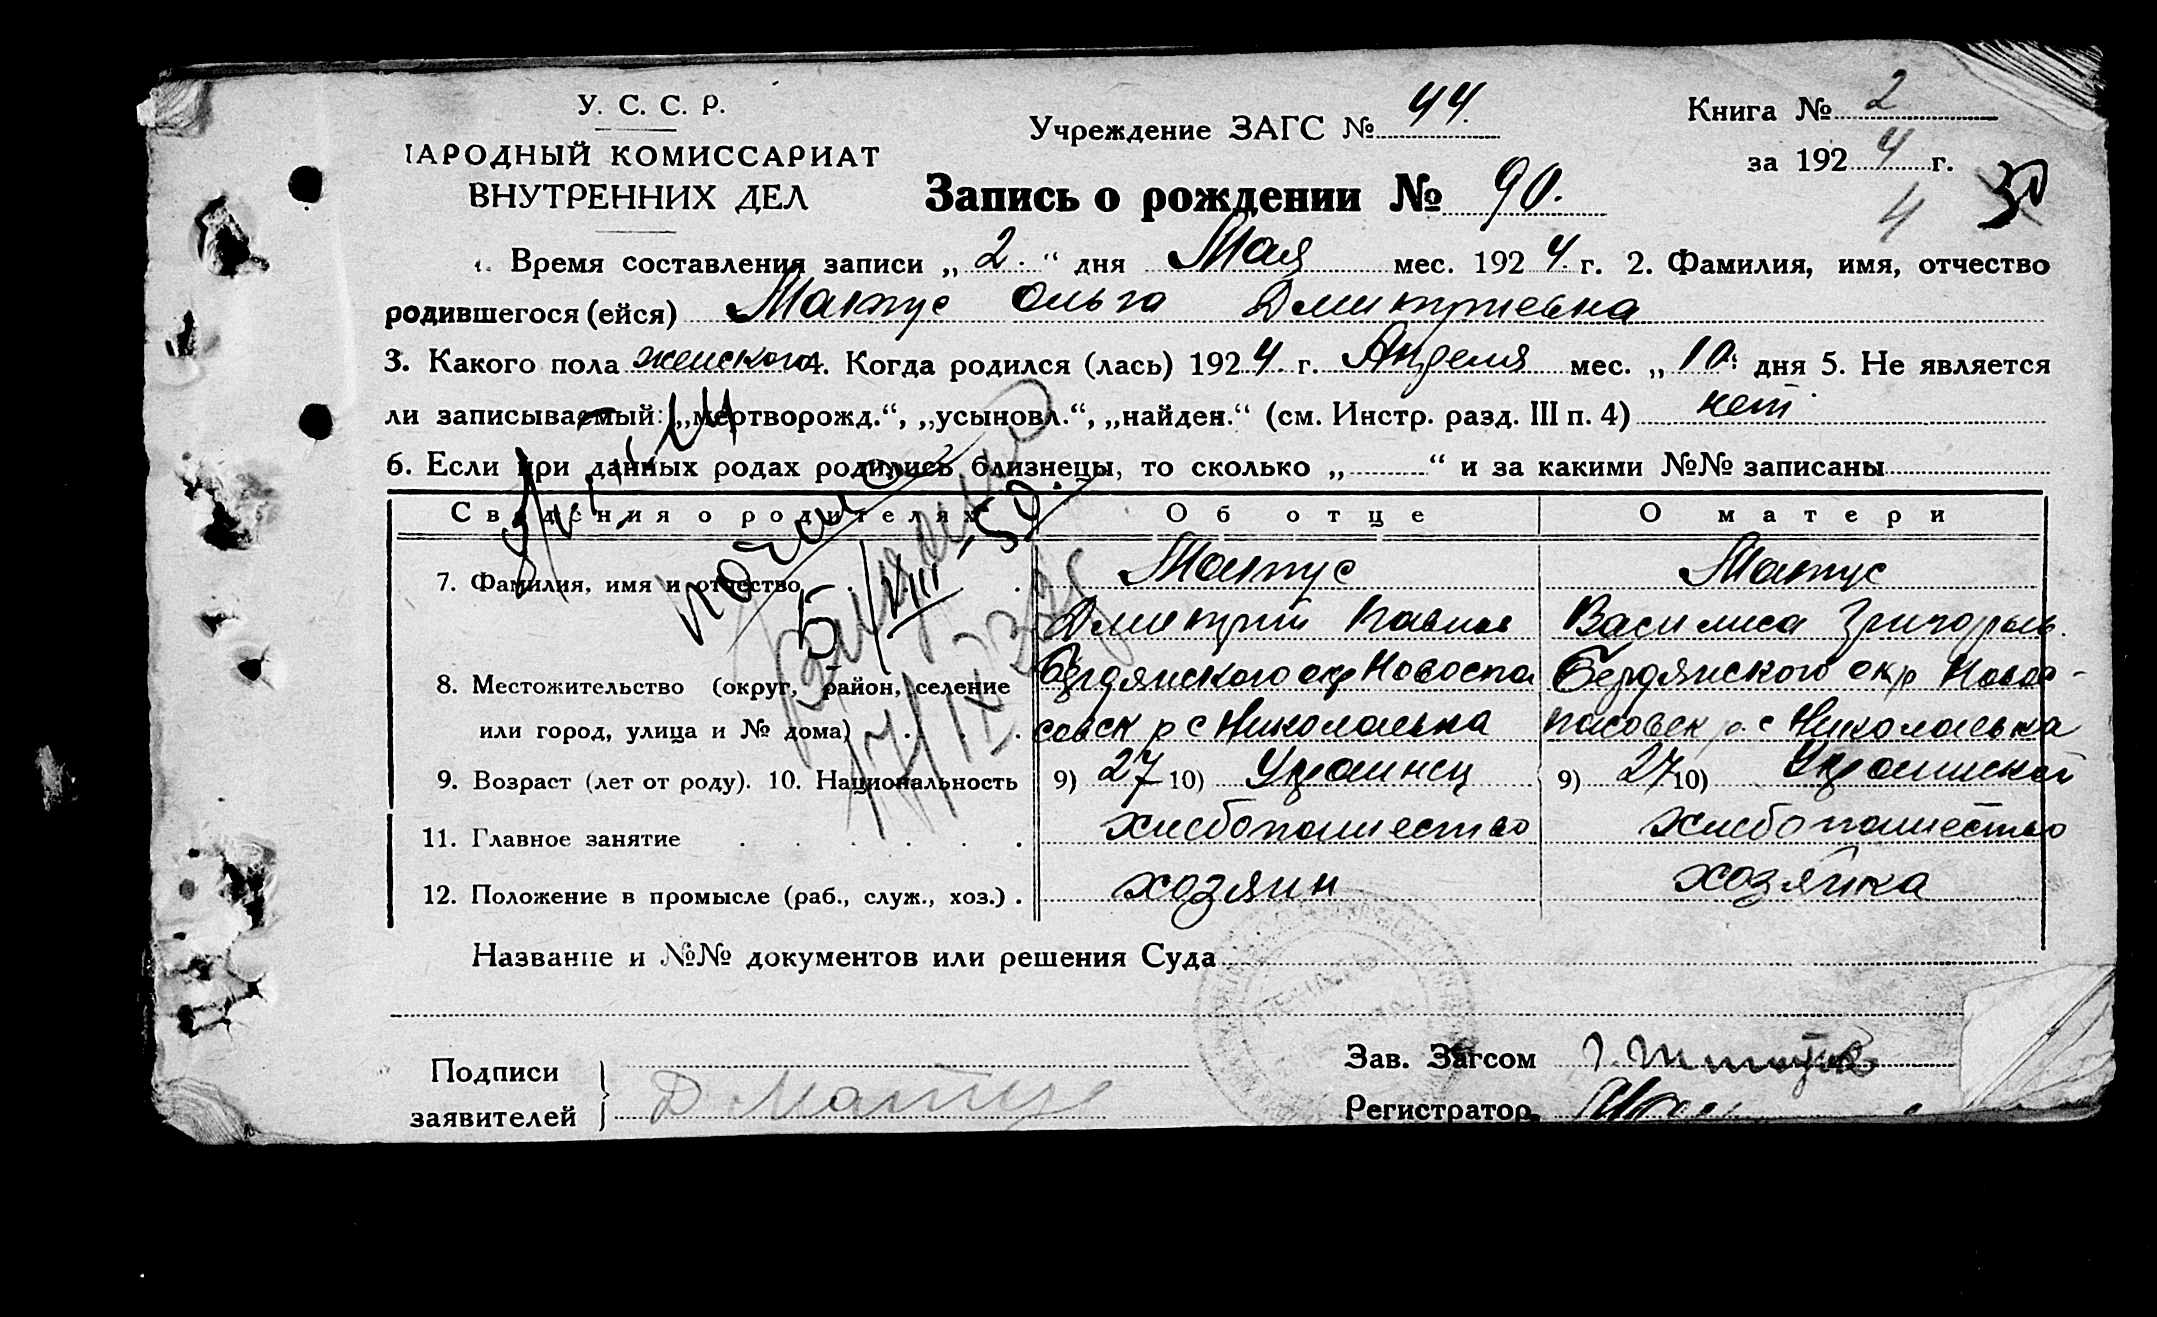 У. С. С. Р.
НАРОДНЫЙ КОМИССАРИАТ
ВНУТРЕННИХ ДЕЛ
Учреждение ЗАГС № 44.
Книга № 2
за 1924 г.
Запись о рождении № 90.
4
1. Время составления записи „2.“ дня Мая мес. 1924. г. 2. Фамилия, имя, отчество
родившегося (ейся) Матус Ольга Дмитриевна
3. Какого пола женского 4. Когда родился (лась) 1924. г. Апреля мес. „10. дня 5. Не является
ли записываемый: „мертворожд.“, „усыновл.“, „найден.“ (см. Инстр. разд. III п. 4) нет
6. Если при данных родах родились близнецы, то сколько „ “ и за какими №№ записаны
Сведения о родителях Об отце О матери
7. Фамилия, имя и отчество Матус Матус
Дмитрий Павлов Василиса Григорьев.
8. Местожительство (округ, район, селение Бердянского окр Новоспа Бердянского окр Новос-
или город, улица и № дома) совск р с Николаевка пасовск р. с Николаевка
9. Возраст (лет от роду). 10. Национальность 9) 27 10) Украинец 9) 27 10) Украинской
11. Главное занятие хлебопашество хлебопашество
12. Положение в промысле (раб., служ., хоз.) хозяин хозяйка
Название и №№ документов или решения Суда
Подписи
заявителей
Д Матус
Зав. Загсом
Регистратор